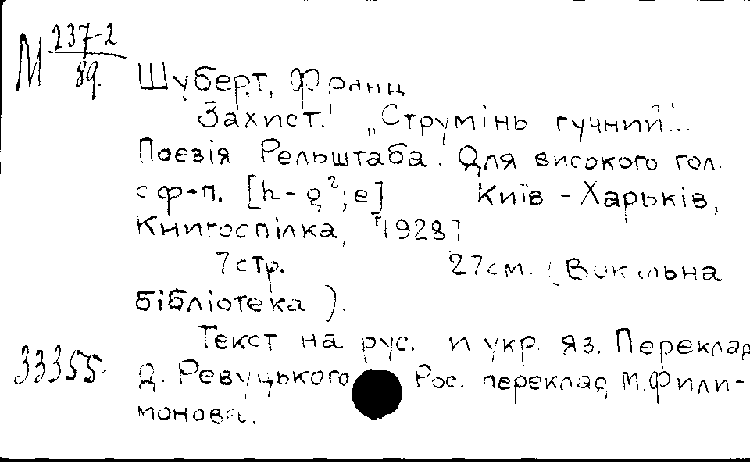 М 237-2
89.
Шуберт, Франц
Захист. "Струмінь гучний"...
Поезія Рельштаба. Для високого гол.
с ф-п. [h-g²; e] Київ-Харьків,
Книгоспілка, [1928]
7 стр. 27 см. (Вокальна
бібліотека).
Текст на рус. и укр. яз. Переклад
33355. Д. Ревуцького Рос. переклад М. Фили-
монова.